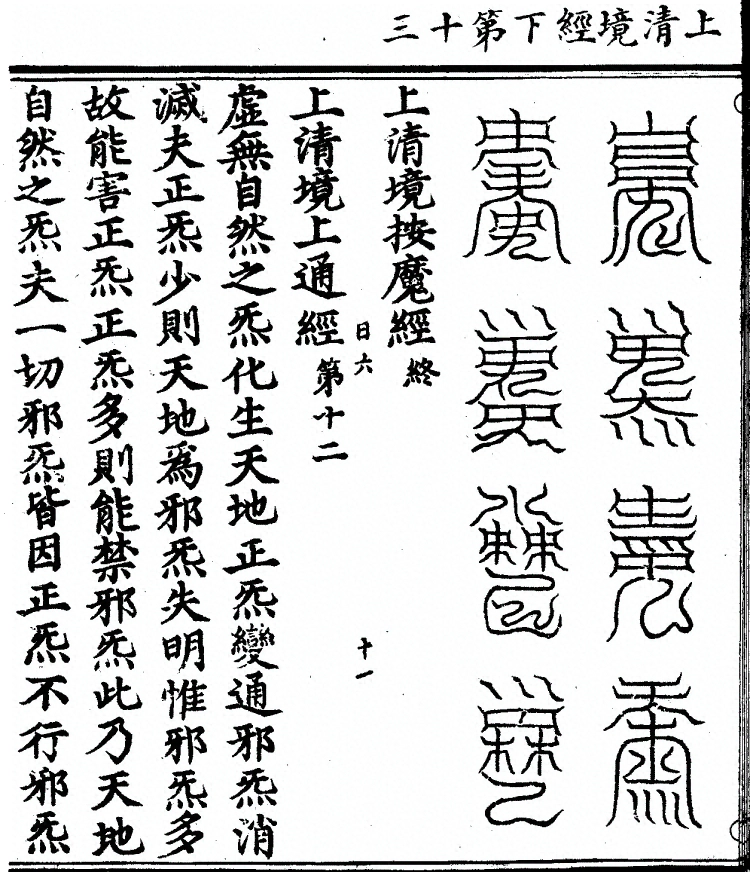 上清境經下第十三
上清境按魔經終
日六
十一
上清境上通經第十二
虛無自然之炁化生天地正炁變通邪炁消
滅夫正炁少則天地爲邪炁失明惟邪炁多
故能害正炁正炁多則能禁邪炁此乃天地
自然之炁夫一切邪炁皆因正炁不行邪炁